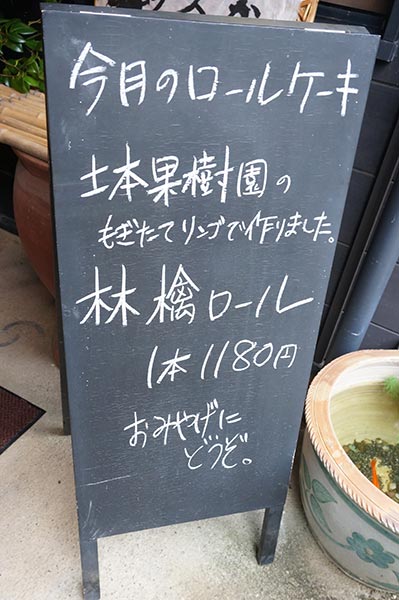 今月のロールケーキ
土本果樹園の
もぎたてリンゴで作りました。
林檎ロール
1本1180円
おみやげに
どうぞ。